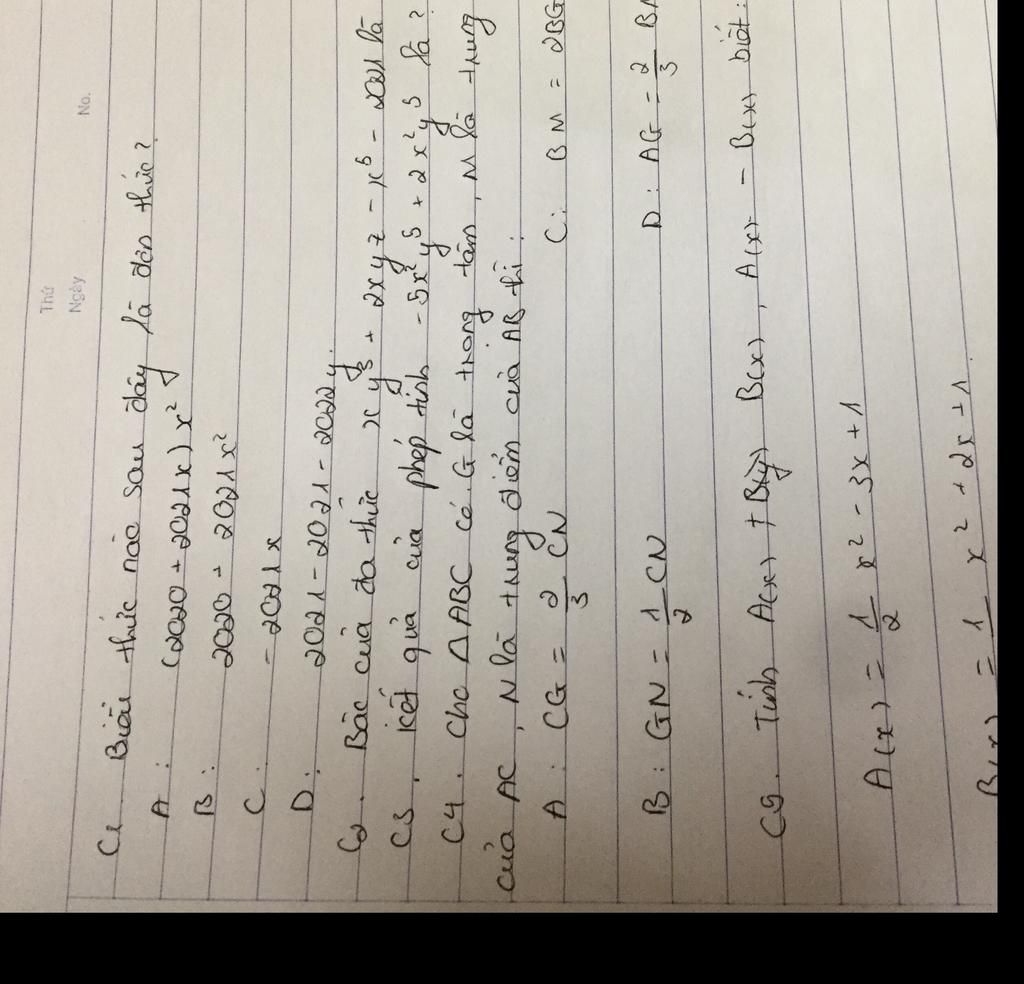 Thứ
Ngày
No.
C1. Biểu thức nào sau đây là đơn thức?
A: (2020 + 2021x)x²
B: 2020 - 2021x²
C: -2021x
D: 2021 - 2021 - 2022y.
C2. Bậc của đa thức xy³ + 2xyz - x⁵ - 2021 là
C3. Kết quả của phép tính -5x²y⁵ + 2x²y⁵ là?
C4. Cho ΔABC có G là trong tâm, M là trung
của AC, N là trung điểm của AB thì:
A: CG = 2/3 CN
C: BM = 2BG
B: GN = 1/2 CN
D: AG = 2/3
C5. Tính A(x) + B(y) B(x), A(x) - B(x) biết:
A(x) = 1/2 x² - 3x + 1
= 1 x² + 2x + 1